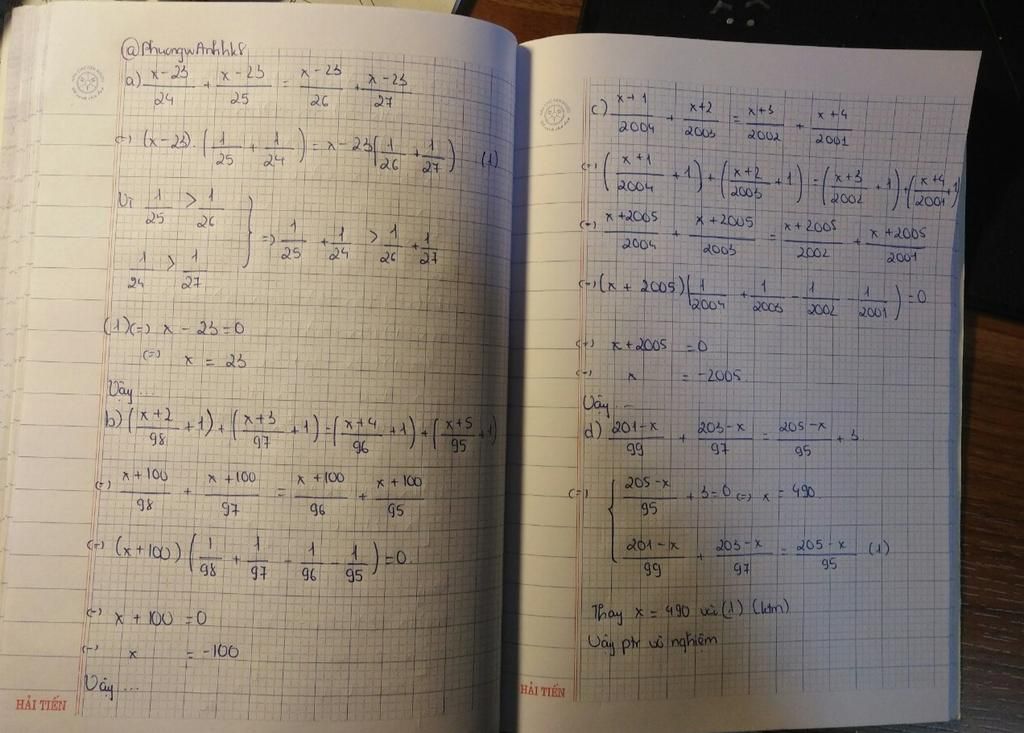 @PhuongwAnhhk8
a) x-23/24 + x-23/25 = x-23/26 + x-23/27
(=) (x-23).(1/25 + 1/24) = x-23(1/26 + 1/27) (1)
Vì 1/25 > 1/26
1/24 > 1/27 } => 1/25 + 1/24 > 1/26 + 1/27
(1)(=) x - 23 = 0
(=) x = 23
Vậy ...
b) (x+2/98 + 1) + (x+3/97 + 1) = (x+4/96 + 1) + (x+5/95 + 1)
(=) x+100/98 + x+100/97 = x+100/96 + x+100/95
(=) (x+100)(1/98 + 1/97 - 1/96 - 1/95) = 0
(=) x + 100 = 0
(=) x = -100
Vậy ...
HẢI TIẾN
c) x+1/2004 + x+2/2003 = x+3/2002 + x+4/2001
(=) (x+1/2004 + 1) + (x+2/2003 + 1) = (x+3/2002 + 1) + (x+4/2001 + 1)
(=) x+2005/2004 + x+2005/2003 = x+2005/2002 + x+2005/2001
(=) (x + 2005)(1/2004 + 1/2003 - 1/2002 - 1/2001) = 0
(=) x+2005 = 0
(=) x = -2005
Vậy ...
d) 201-x/99 + 203-x/97 = 205-x/95 + 3
(=) { 205-x/95 + 3 = 0 (=) x = 490
201-x/99 + 203-x/97 = 205-x/95 (1)
Thay x = 490 vào (1) (ktm)
Vậy ptr vô nghiệm
HẢI TIẾN